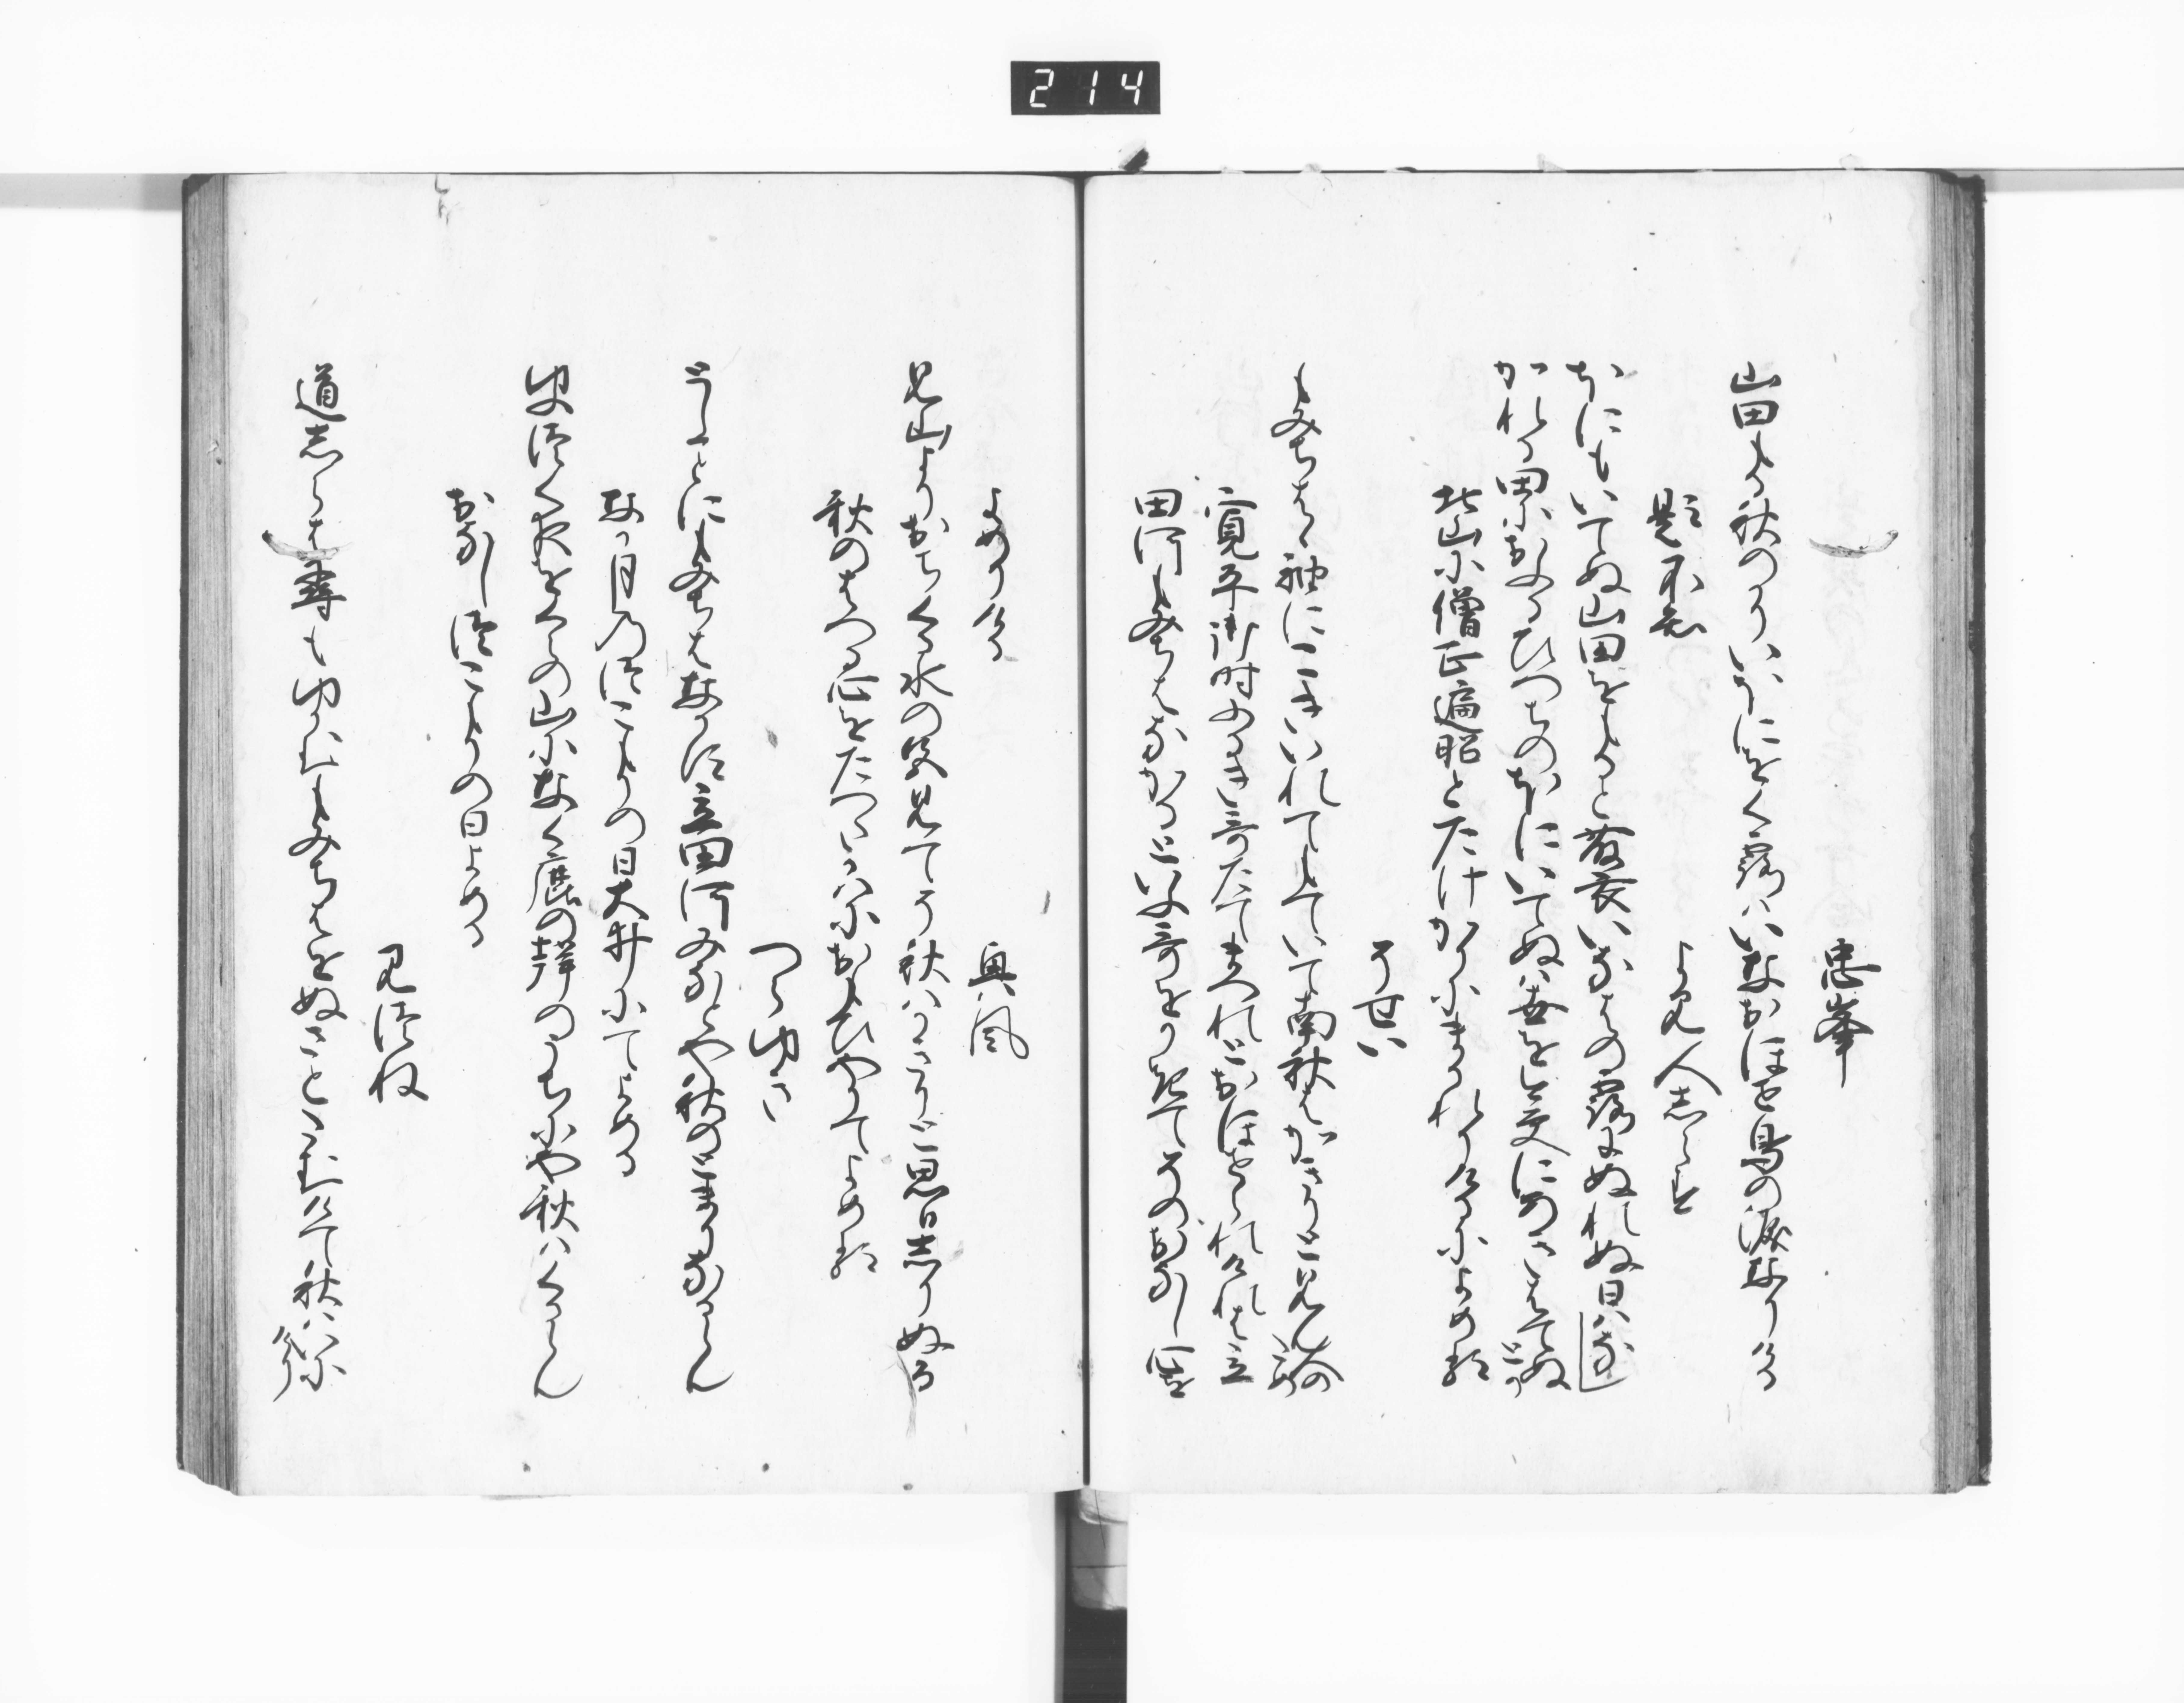 214
忠峯
山田もる秋のかりいほにをく露はいなおほせ鳥の涙なりけり
題不知
よみ人志らす
ほにもいてぬ山田をもると藤衣いなはの露にぬれぬ日はなし
かれる田におふるひつちのほにいてぬは世を今更にあきはてぬとか
北山に僧正遍昭とたけかりにまかれりけるによめる
そせい
もみちはゝ袖にこきいれてもていてなん秋はかきりと見ん人のため
寛平御時ふるき哥たてまつれとおほせられけれは立
田河もみちはなかるといふ哥をかきてそのおなし心を
よめりける
興風
見山よりおちくる水の色見てそ秋はかきりと思日志りぬる
秋のはつる心をたつた河に思ひやりてよめる
つらゆき
としことにもみちはなかす立田河みなとや秋のとまりなるらん
なか月のつこもりの日大井にてよめる
ゆふつくよをくらの山になく鹿の聲のうちにや秋はくるらん
おなしつこもりの日よめる
みつね
道志らは尋もゆかむもみちはをぬさとたむけて秋はいにけり